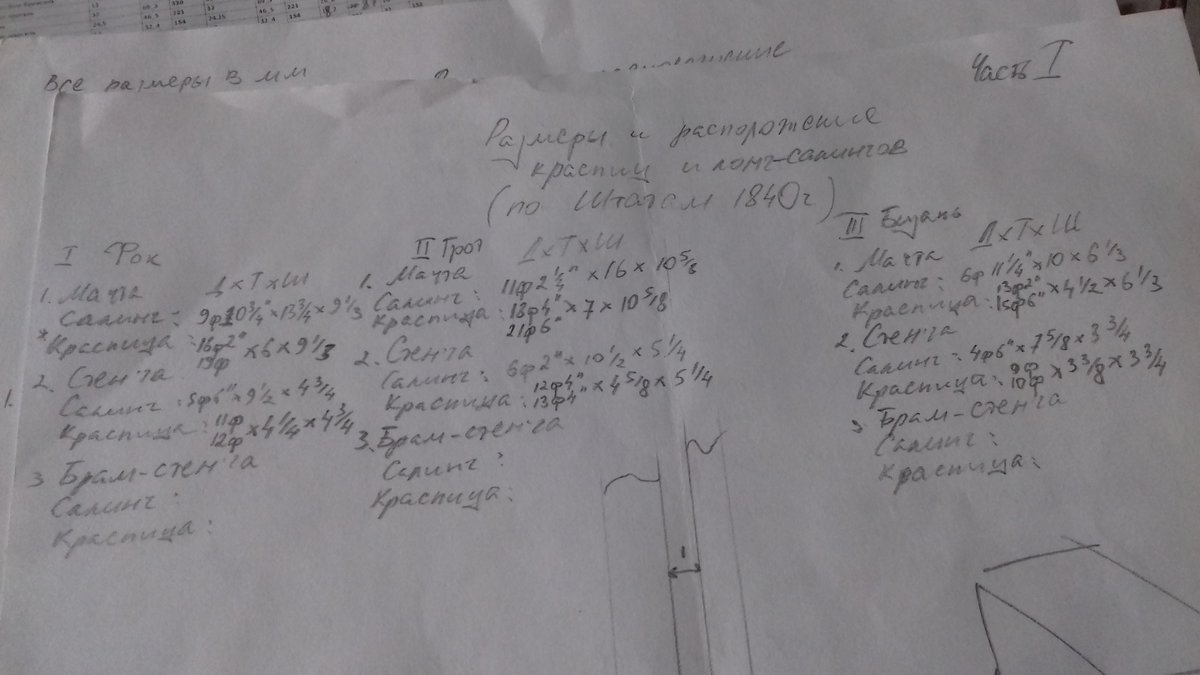 Все размеры в мм
Часть I
Размеры и расположение
краспиц и лонг-салингов
(по Штатам 1840г)
I Фок
1. Мачта Д×Т×Ш
Салинг: 9ф10 3/4"×13 3/4×9 1/3
*Краспица: 16ф2" ×6×9 1/3
19ф
2. Стеньга
1.
Салинг: 5ф6"×9 1/2×4 3/4
Краспица: 11ф ×4 1/4×4 3/4
12ф
3 Брам-стеньга
Салинг:
Краспица:
II Грот
1. Мачта Д×Т×Ш
Салинг: 11ф2 1/4"×16×10 5/8
Краспица: 18ф4"×7×10 5/8
21ф6"
2. Стеньга
Салинг: 6ф2"×10 1/2×5 1/4
Краспица: 12ф4" ×4 5/8×5 1/4
13ф4"
3. Брам-стеньга
Салинг:
Краспица:
III Бизань
1. Мачта Д×Т×Ш
Салинг: 6ф11 1/4"×10×6 1/3
Краспица: 13ф2" ×4 1/2×6 1/3
15ф6"
2. Стеньга
Салинг: 4ф6"×7 5/8×3 3/4
Краспица: 9ф ×3 3/8×3 3/4
10ф
3 Брам-стеньга
Салинг:
Краспица:
1